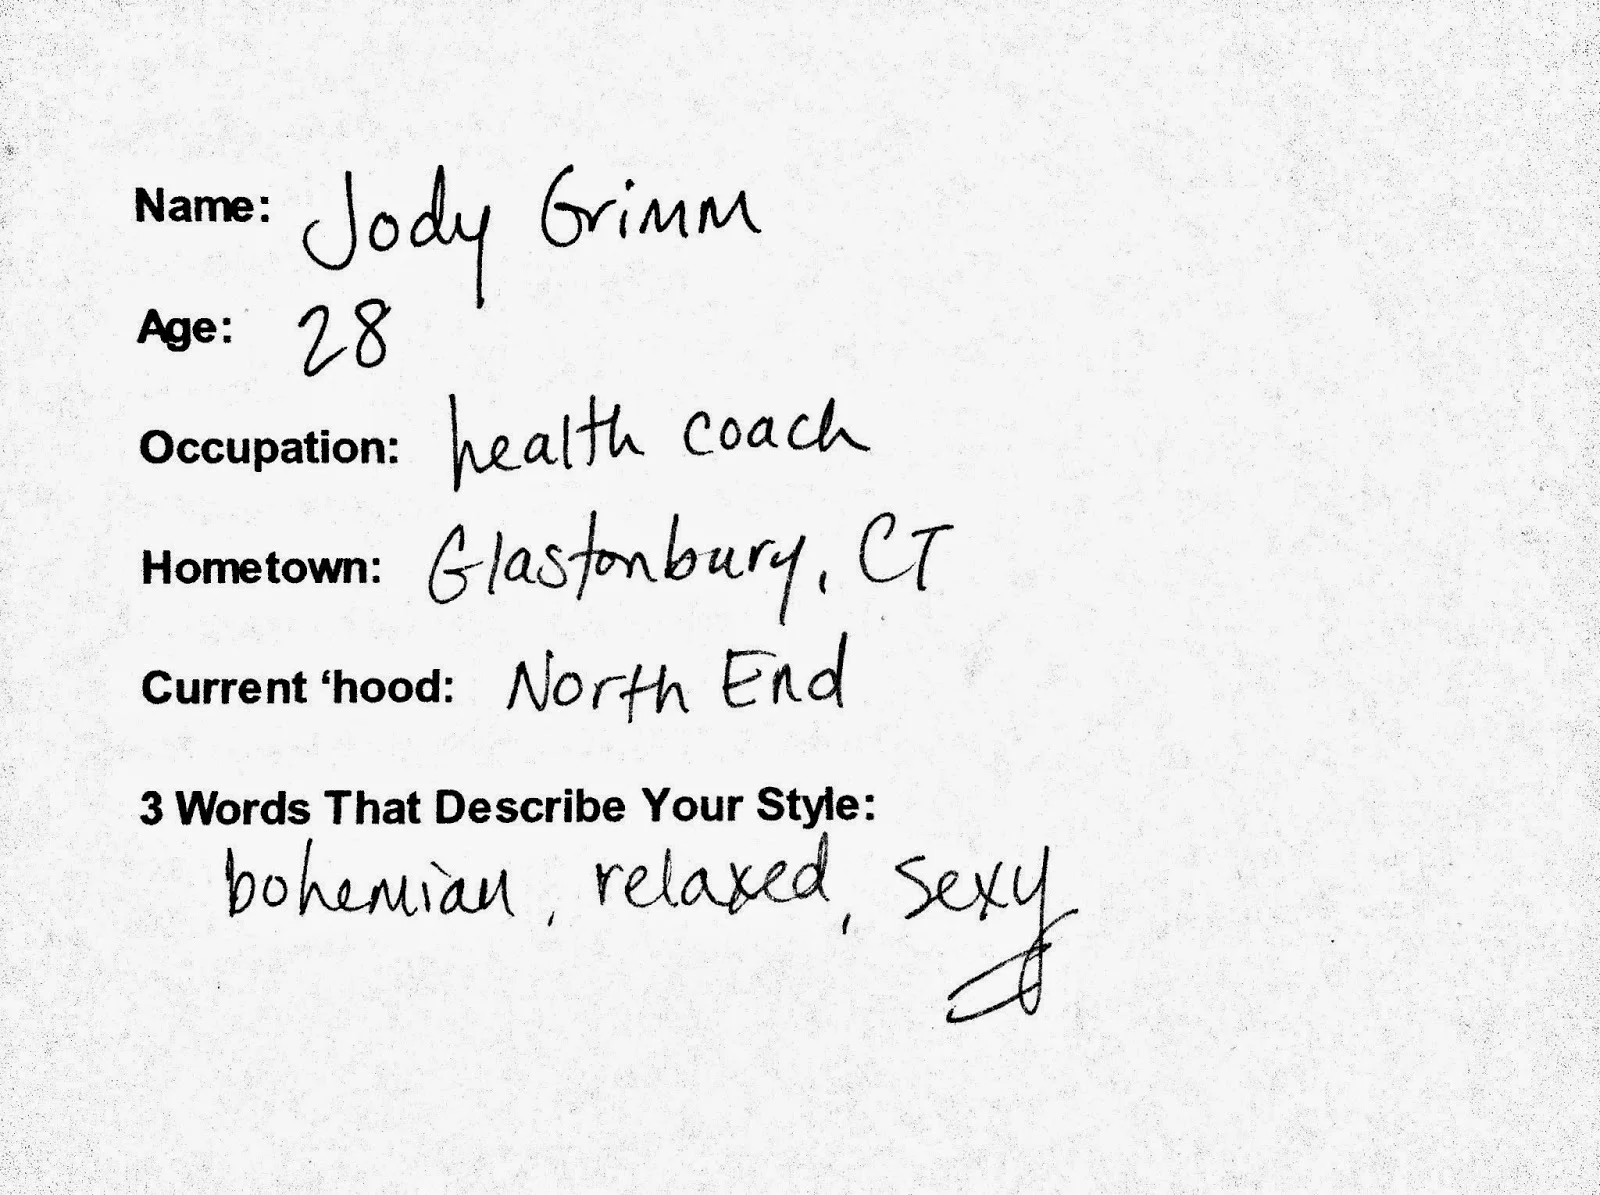 Name: Jody Grimm
Age: 28
Occupation: health coach
Hometown: Glastonbury, CT
Current ‘hood: North End
3 Words That Describe Your Style:
bohemian, relaxed, sexy